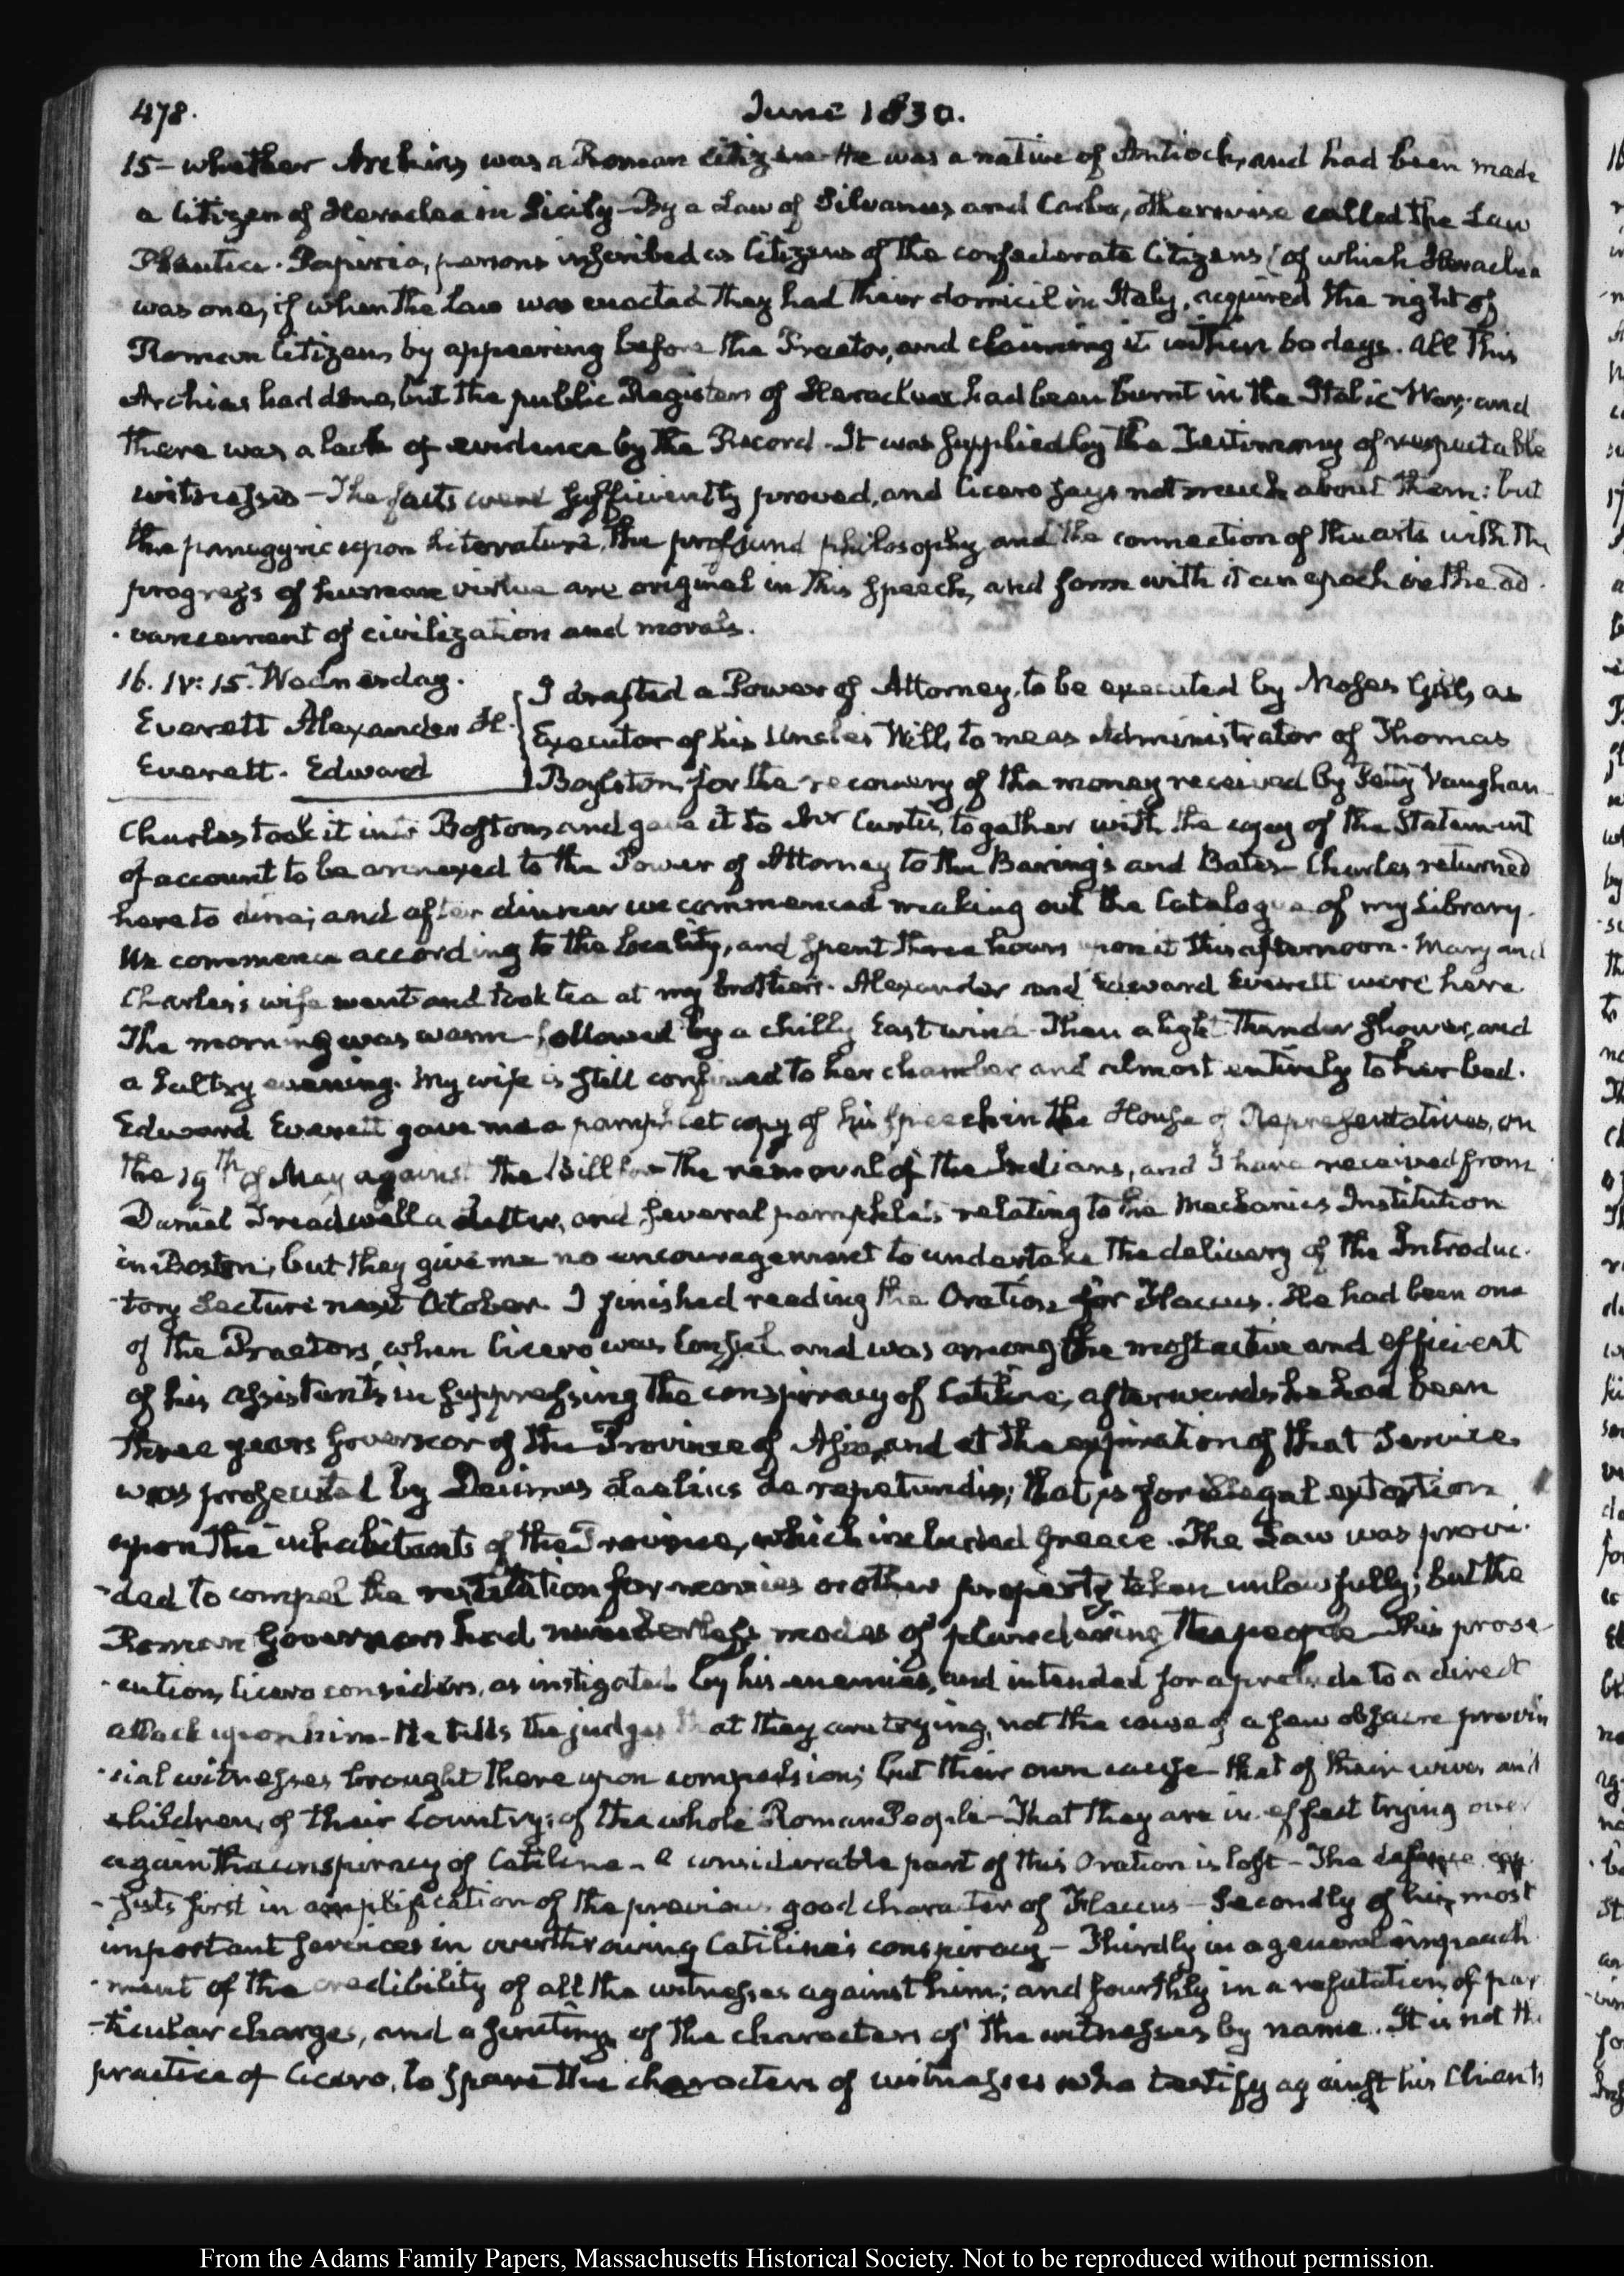 478.
June 1830.
15 - whether Archias was a Roman Citizen - He was a native of Antioch, and had been made
a Citizen of Heraclea in Sicily - By a Law of Silvanus and Carbo, otherwise called the Law
Plautia-Papiria, persons inscribed as Citizens of the confederate Citizens (of which Heraclea
was one, if when the Law was enacted they had their domicil in Italy, acquired the right of
Roman Citizens by appearing before the Praetor, and claiming it within 60 days. All this
Archias had done, but the public Registers of Heraclea had been burnt in the Italic War, and
there was a lack of evidence by the Record. It was supplied by the Testimony of respectable
witnesses - The facts were sufficiently proved, and Cicero says not much about them: but
the panegyric upon Literature, the profound philosophy and the connection of the arts with the
progress of human virtue are original in this speech, and form with it an epoch in the ad-
-vancement of civilization and morals.
16. IV: 15. Wednesday.
Everett Alexander H.
Everett. Edward
I drafted a Power of Attorney, to be executed by Moses Gill, as
Executor of his Uncles Will, to me as Administrator of Thomas
Boylston, for the recovery of the money received by Petty Vaughan
Charles took it into Boston and gave it to Mr Curtis, together with the copy of the Statement
of account to be annexed to the Power of Attorney to the Barings and Bates - Charles returned
here to dine; and after dinner we commenced making out the Catalogue of my Library.
We commence according to the locality, and spent three hours upon it this afternoon. Mary and
Charles's wife went and took tea at my brother's. Alexander and Edward Everett were here
The morning was warm - followed by a chilly East wind - Then a light Thunder Shower, and
a sultry evening. My wife is still confined to her chamber and almost entirely to her bed.
Edward Everett gave me a pamphlet copy of his speech in the House of Representatives, on
the 19th of May against the Bill for the removal of the Indians, and I have received from
Daniel Treadwell a Letter, and several pamphlets relating to the Mechanics Institution
in Boston; but they give me no encouragement to undertake the delivery of the Introduc-
-tory Lecture next October. I finished reading the Oration for Flaccus. He had been one
of the Praetors, when Cicero was Consul, and was among the most active and efficient
of his assistants in suppressing the conspiracy of Catiline; afterwards he had been
three years Governor of the Province of Asia, and at the expiration of that Service
was prosecuted by Decimus Laelius de repetundis; that is for illegal extortion
upon the inhabitants of the Province, which included Greece. The Law was provi-
-ded to compel the restitution for monies or other property taken unlawfully; but the
Roman Governors had numberless modes of plundering the people - This prose-
-cution, Cicero considers, as instigated by his enemies, and intended for a prelude to a direct
attack upon him - He tells the judges that they are trying, not the cause of a few obscure provin
-cial witnesses brought there upon compulsion; but their own cause that of their wives and
children, of their Country; of the whole Roman People - That they are in effect trying over
again the conspiracy of Catiline - a considerable part of this Oration is lost - The defence con
-sists first in amplification of the previous good character of Flaccus - Secondly of his most
important services in overthrowing Catiline's conspiracy - Thirdly in a general impeach
-ment of the credibility of all the witnesses against him; and fourthly in a refutation of par
-ticular charges, and a scrutiny of the characters of the witnesses by name. It is not the
practice of Cicero, to spare the characters of witnesses who testify against his Clients
From the Adams Family Papers, Massachusetts Historical Society. Not to be reproduced without permission.